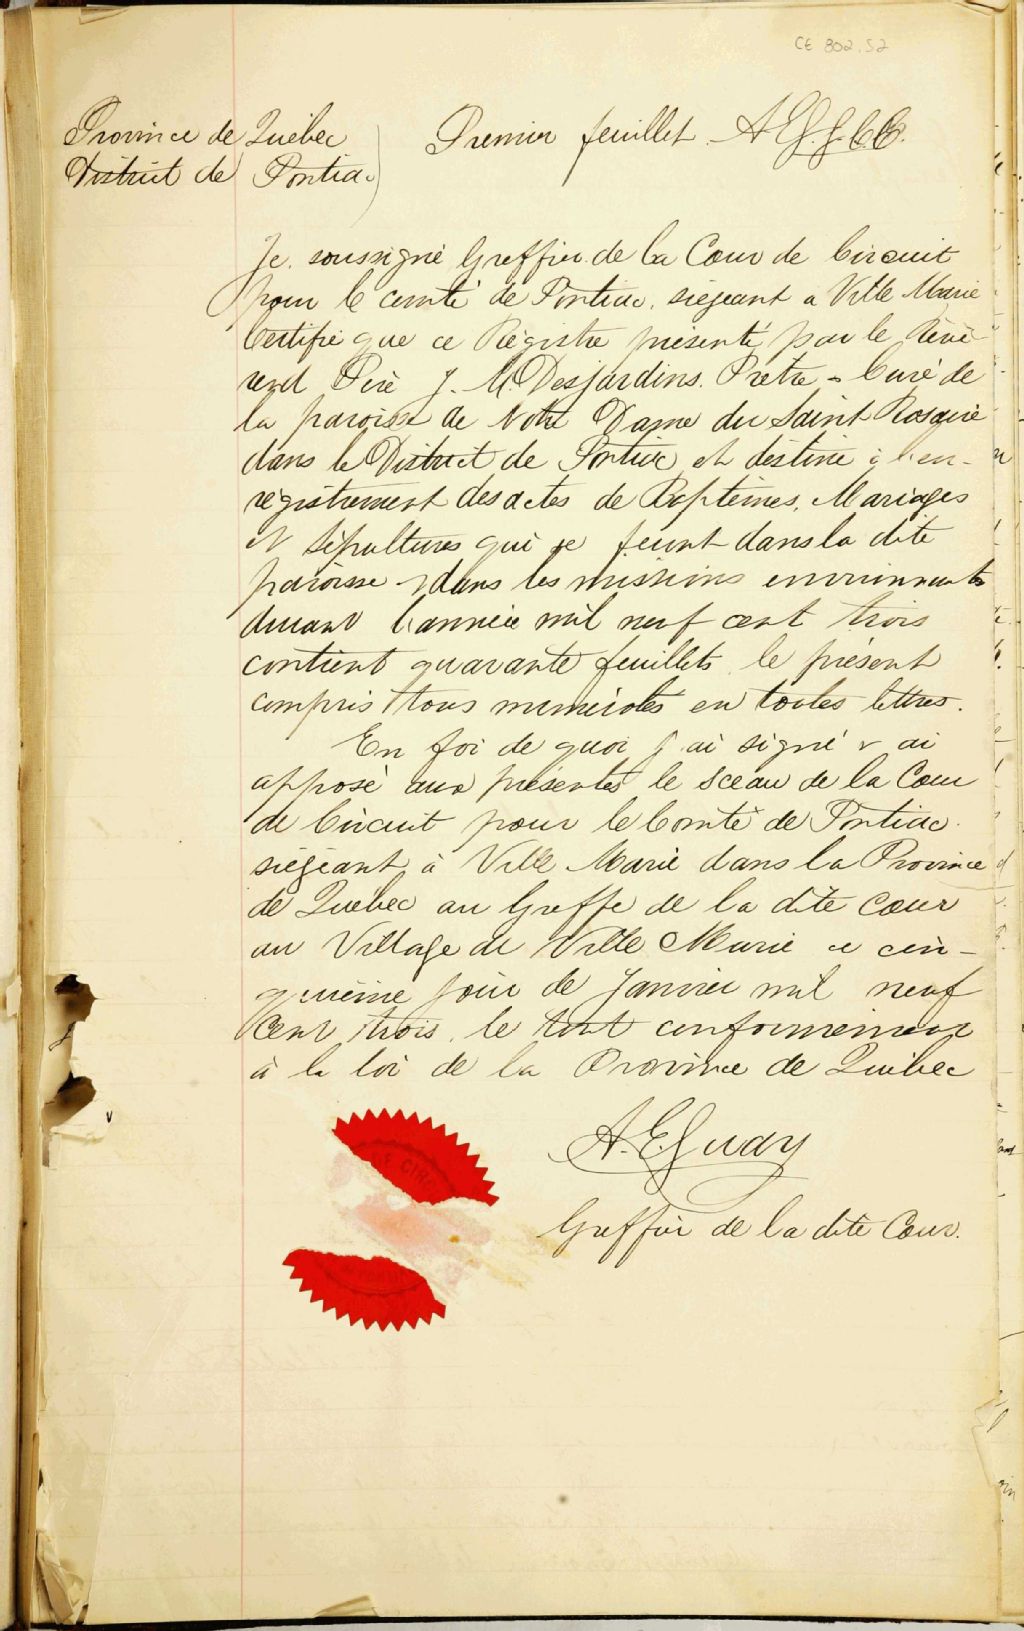 CE 802.52
Province de Québec
District de Pontiac
Premier feuillet. A E G. g. C C.
Je, soussigné Greffier de la Cour de Circuit
pour le comté de Pontiac, siégeant a Ville Marie
Certifie que ce Régistre présenté par le Révé-
rend Père J. M. Desjardins. Prêtre - Curé de
la paroisse de Notre Dame du Saint Rosaire
dans le District de Pontiac et destiné à l'en-
régistrement des actes de Baptêmes, Mariages
et Sépultures qui se feront dans la dite
paroisse & dans les missions environnantes
durant l'année mil neuf cent trois
contient quarante feuillets le présent
compris tous numérotés en toutes lettres.
En foi de quoi j'ai signé & ai
apposé aux présentes le sceau de la Cour
de Circuit pour le Comté de Pontiac.
siégeant à Ville Marie dans la Province
de Québec au Greffe de la dite Cour
au Village de Ville Marie ce cin-
quième jour de Janvier mil neuf
Cent trois, le tout conformément
à la loi de la Province de Québec
A. E. Guay
Greffier de la dite Cour.
DE CIRC